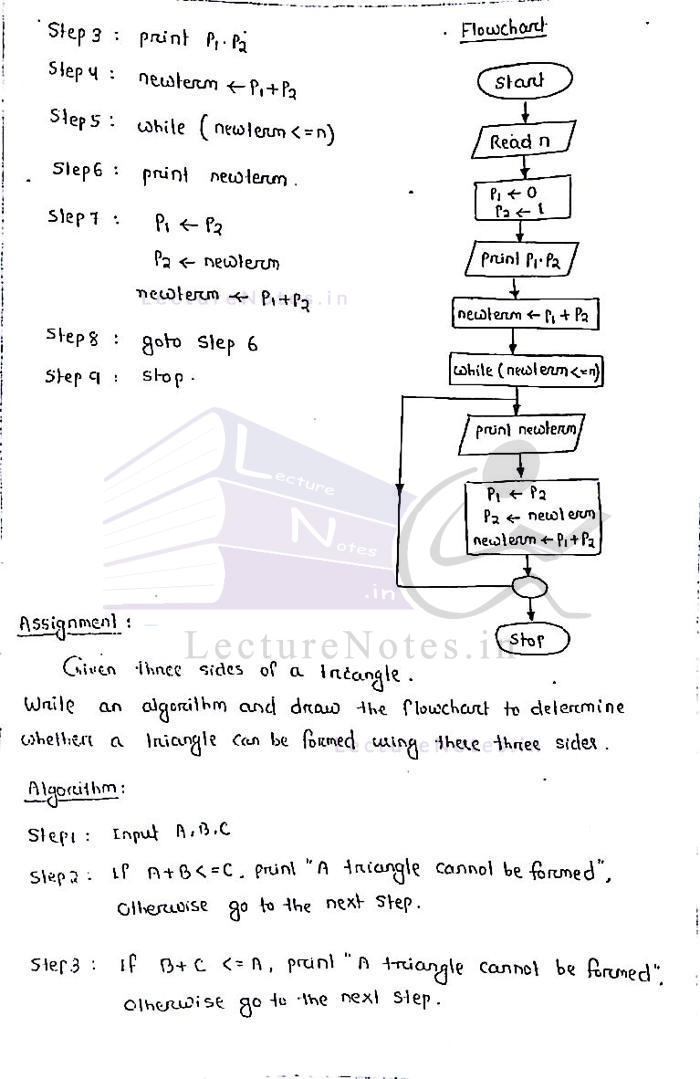 Step 3 : print P₁, P₂
Step 4 : newterm ← P₁+P₂
Step 5 : while (newterm <= n)
Step 6 : print newterm.
Step 7 : P₁ ← P₂
P₂ ← newterm
newterm ← P₁+P₂
Step 8 : goto step 6
Step 9 : stop.
Flowchart
Start
Read n
P₁ ← 0
P₂ ← 1
print P₁, P₂
newterm ← P₁ + P₂
while (newterm <= n)
print newterm
P₁ ← P₂
P₂ ← newterm
newterm ← P₁+P₂
Stop
LectureNotes.in
Lecture
Notes
.in
LectureNotes.in
Assignment :
Given three sides of a triangle.
Write an algorithm and draw the flowchart to determine
whether a triangle can be formed using these three sides.
LectureNotes.in
Algorithm :
Step1 : Input A,B,C
Step2 : If A+B <= C, print "A triangle cannot be formed",
Otherwise go to the next step.
Step3 : If B+C <= A, print "A triangle cannot be formed",
Otherwise go to the next step.